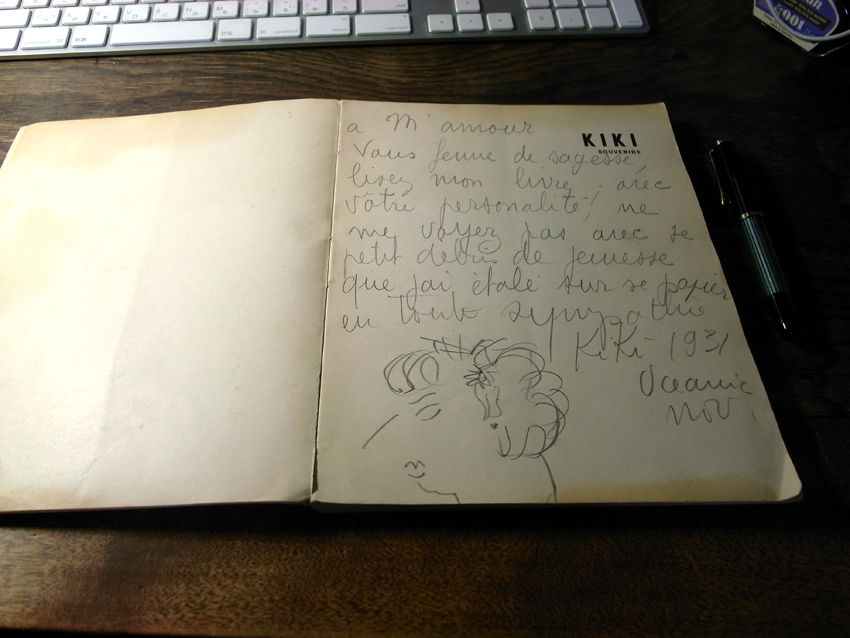 KIKI
SOUVENIRS
a M'amour
Vous femme de sagesse,
lisez mon livre, avec
vôtre personalité, ne
me voyez pas avec se
petit debris de jeunesse
que j'ai étalé sur se papier
en toute sympathie
KiKi 1931
Oceanic
nov.
100